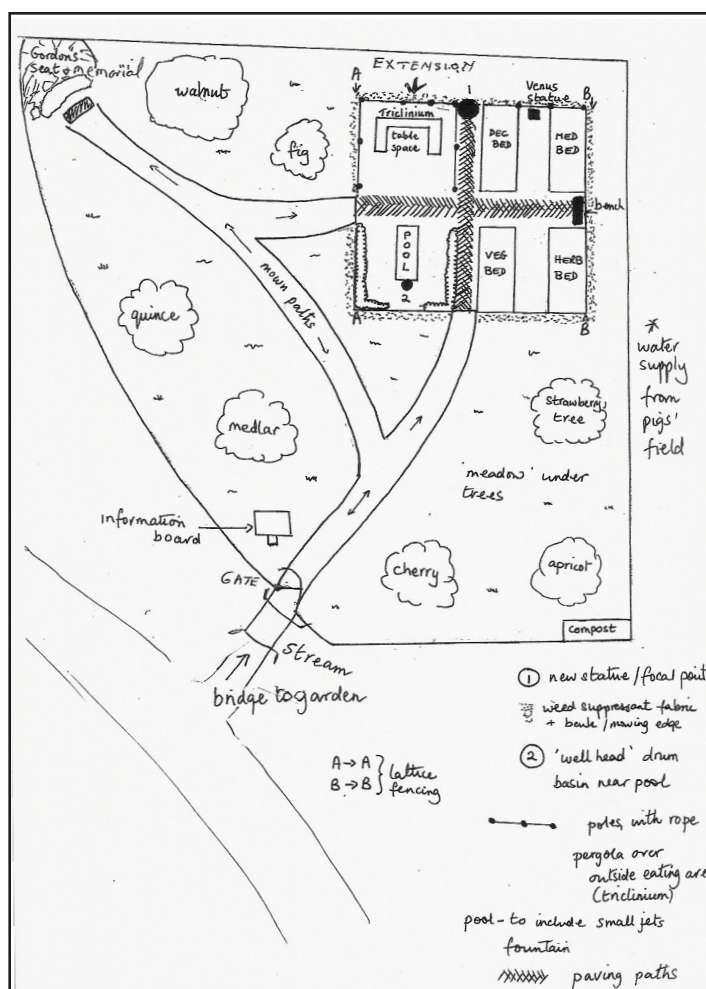 Gordon's
Seat & memorial
walnut
fig
EXTENSION
A
1
Venus
statue
B
Triclinium
table
space
DEC
BED
MED
BED
bench
POOL
2
VEG
BED
HERB
BED
A
B
mown paths
quince
medlar
strawberry
tree
'meadow' under
trees
* water
supply
from
pigs'
field
information
board
GATE
cherry
apricot
compost
stream
bridge to garden
A → A
B → B
lattice
fencing
1 new statue/focal point
weed suppressant fabric
+ /mowing edge
2 'well head' drum
basin near pool
poles, with rope
pergola over
outside eating are
(triclinium)
pool - to include small jets
fountain
paving paths